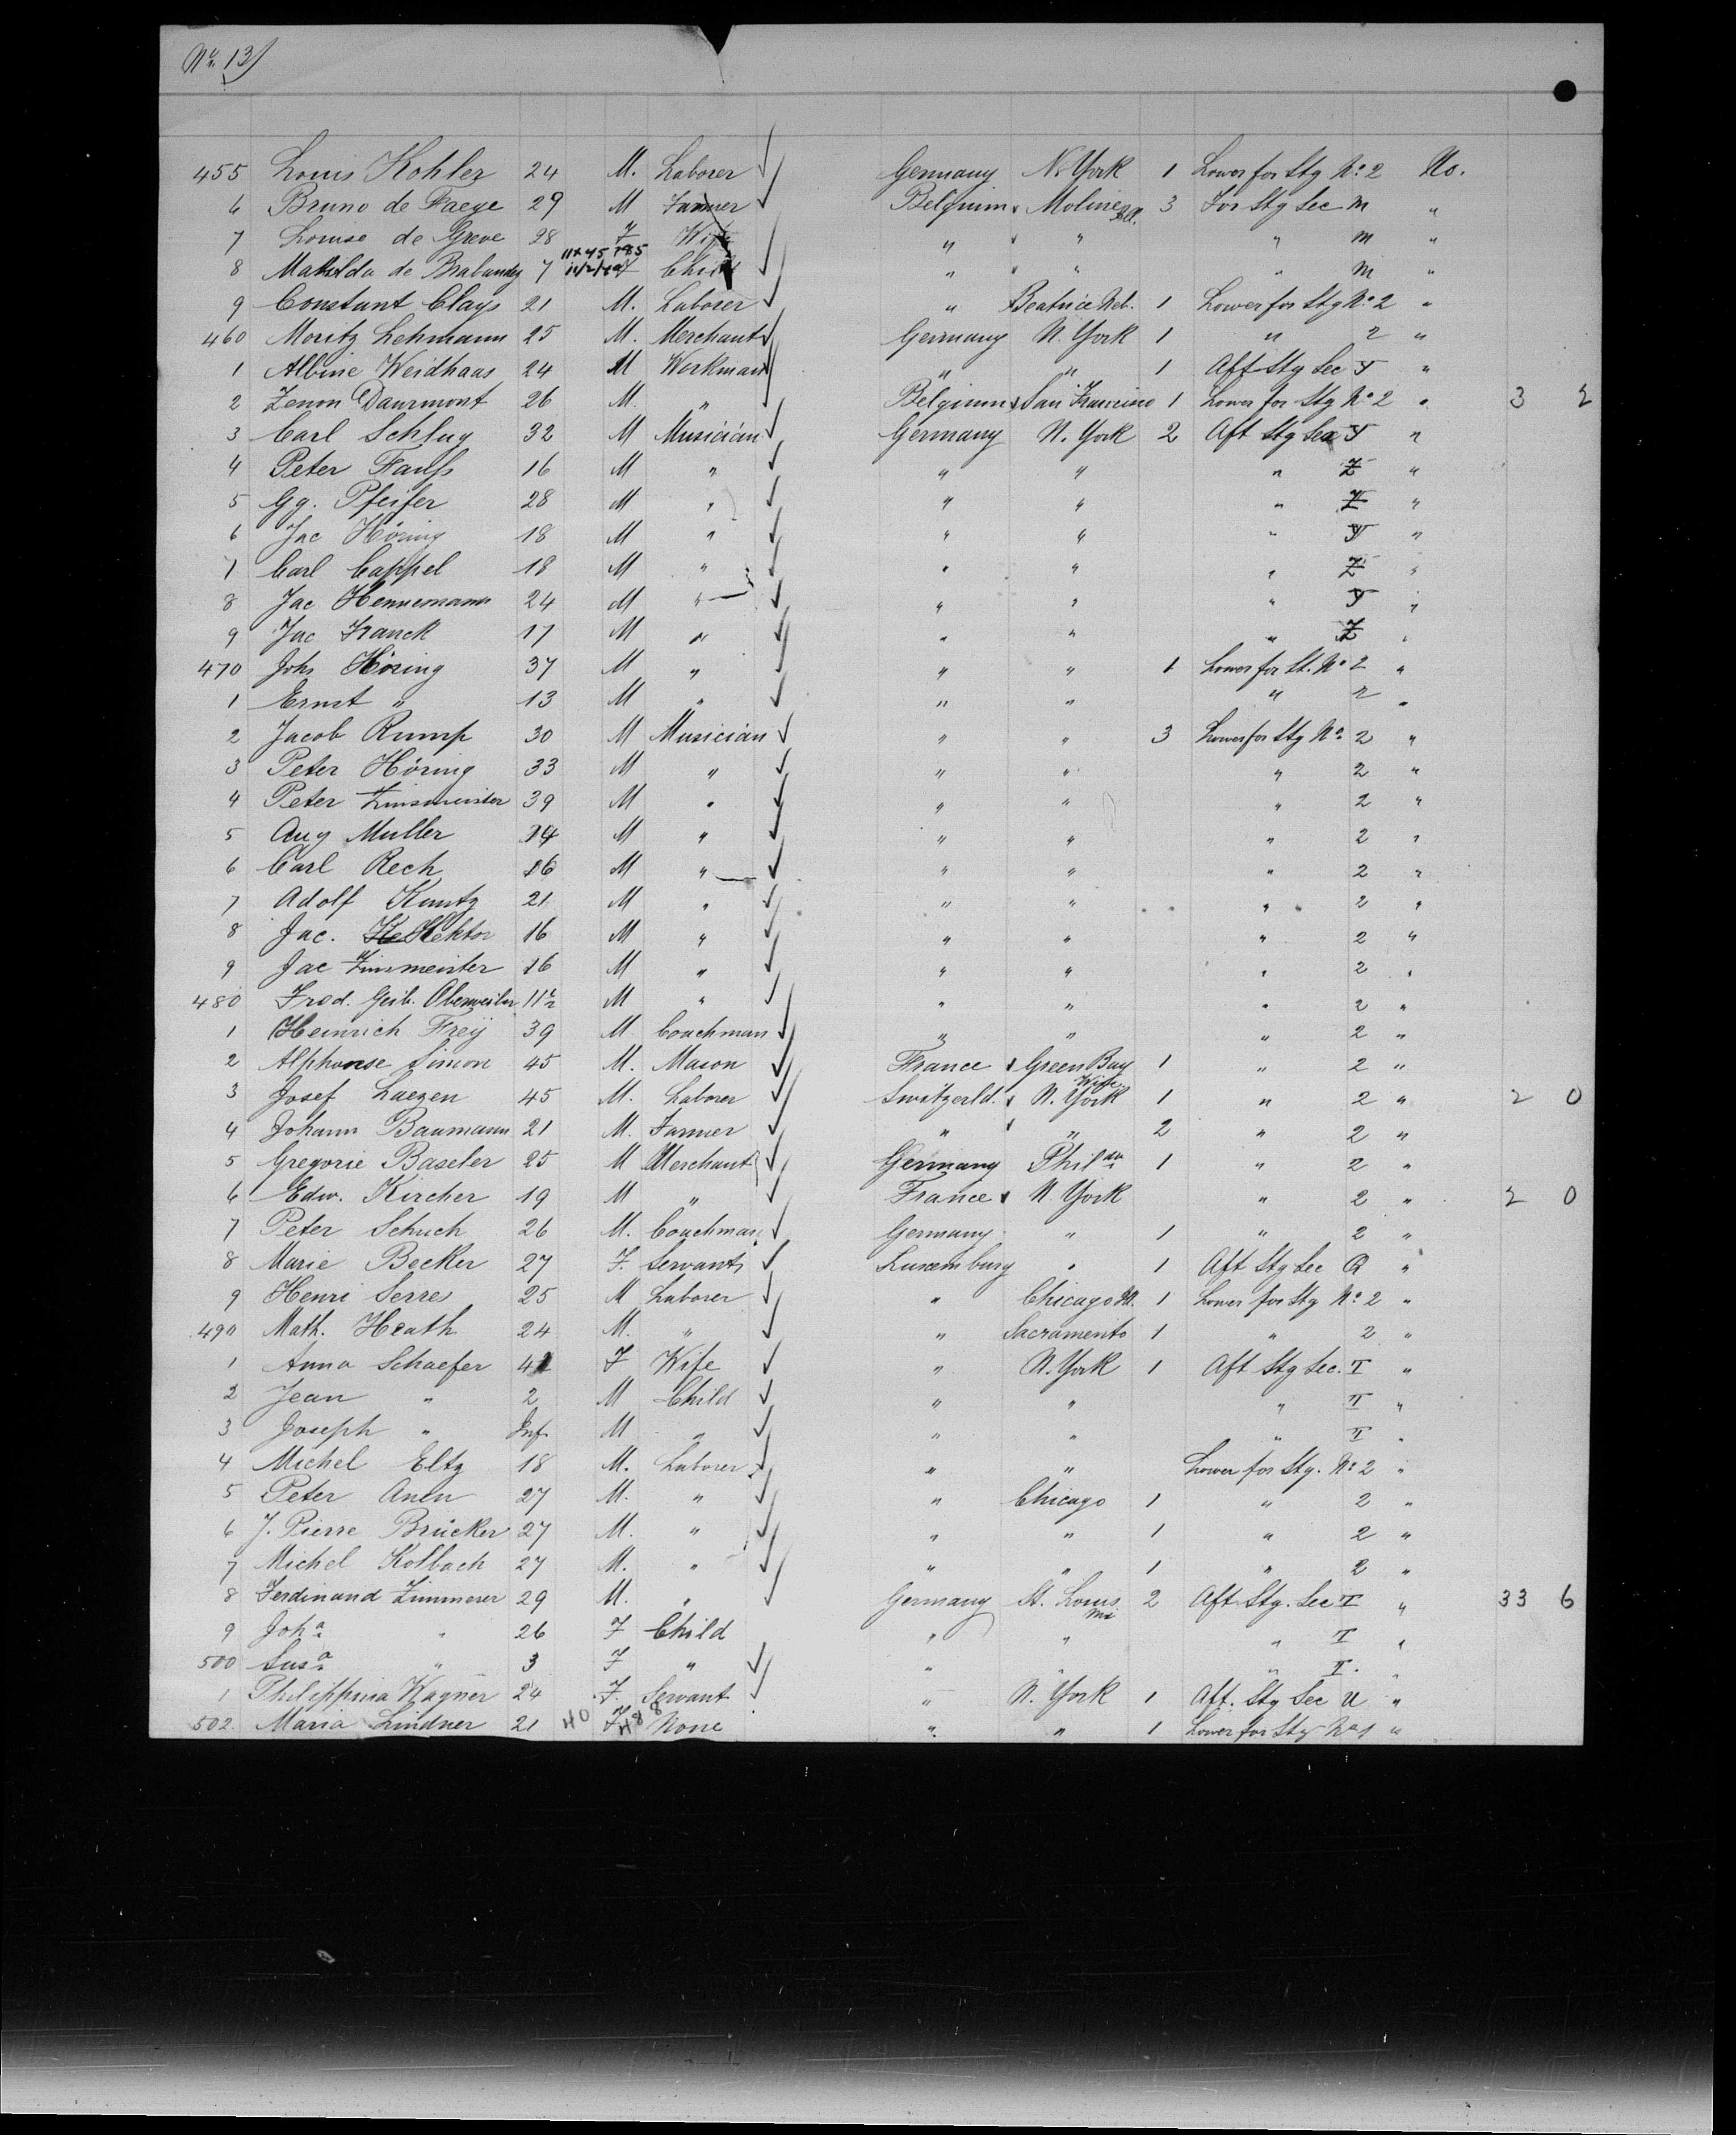 No. 13)
455 Louis Kohler 24 M. Laborer Germany N. York 1 Lower for Stg No. 2 No.
6 Bruno de Faeye 29 M Farmer Belgium Moline Ill. 3 For Stg Sec M "
7 Louise de Greve 28 F Wife " " " M "
8 Mathilda de Brabander 7 F Child " " " M "
9 Constant Clays 21 M. Laborer " Beatrice Neb. 1 Lower for Stg No. 2 "
460 Moritz Lehmann 25 M. Merchant Germany N. York 1 " 2 "
1 Albine Weidhaas 24 M Workman " " 1 Aft Stg Sec Y "
2 Zenon Daurmont 26 M. " Belgium San Francisco 1 Lower for Stg No. 2 " 3 2
3 Carl Schlug 32 M Musician Germany N. York 2 Aft Stg Sec Y "
4 Peter Faulss 16 M " " " " Z "
5 Gg. Pfeifer 28 M " " " " Z "
6 Jac Höring 18 M " " " " Y "
7 Carl Cappel 18 M " " " " Z "
8 Jac Hennemann 24 M " " " " Y "
9 Jac Franck 17 M " " " " Z "
470 Johs Höring 37 M " " " 1 Lower for St. No. 2 "
1 Ernst " 13 M " " " " 2 "
2 Jacob Rump 30 M Musician " " 3 Lower for Stg No. 2 "
3 Peter Höring 33 M " " " " 2 "
4 Peter Zinsmeister 39 M " " " " 2 "
5 Aug Muller 14 M " " " " 2 "
6 Carl Rech 16 M " " " " 2 "
7 Adolf Kuntz 21 M " " " " 2 "
8 Jac. Hektor 16 M " " " " 2 "
9 Jac Zinsmeister 16 M " " " " 2 "
480 Fred. Geib. Obenweiler 11½ M " " " " 2 "
1 Heinrich Freÿ 39 M. Coachman " " " 2 "
2 Alphonse Simon 45 M. Mason France Green Bay Wisc. 1 " 2 "
3 Josef Laezen 45 M. Laborer Switzerld. N. York 1 " 2 " 2 0
4 Johann Baumann 21 M. Farmer " " 2 " 2 "
5 Gregorie Baseler 25 M Merchant Germany Phil.da 1 " 2 "
6 Edw. Kircher 19 M " France N. York " 2 " 2 0
7 Peter Schuch 26 M. Coachman Germany " 1 " 2 "
8 Marie Becker 27 F. Servant Luxemburg " 1 Aft Stg Sec Q "
9 Henri Serres 25 M Laborer " Chicago Ill. 1 Lower for Stg No. 2 "
490 Math. Heath 24 M. " " Sacramento 1 " 2 "
1 Anna Schaefer 42 F Wife " N. York 1 Aft Stg Sec. T "
2 Jean " 2 M Child " " " T "
3 Joseph " Inf M " " " " T "
4 Michel Eltz 18 M. Laborer " " Lower for Stg. No. 2 "
5 Peter Anen 27 M. " " Chicago 1 " 2 "
6 J. Pierre Brücker 27 M. " " " 1 " 2 "
7 Michel Kolbach 27 M. " " " 1 " 2 "
8 Ferdinand Zimmerer 29 M. " Germany St. Louis Mo 2 Aft Stg. Sec T " 33 6
9 Joha " 26 F Child " " " T "
500 Susa " 3 F " " " T. "
1 Philippina Wagner 24 F. Servant " N. York 1 Aft. Stg Sec U "
502 Maria Lindner 21 F None " " 1 Lower for Stg No 1 "